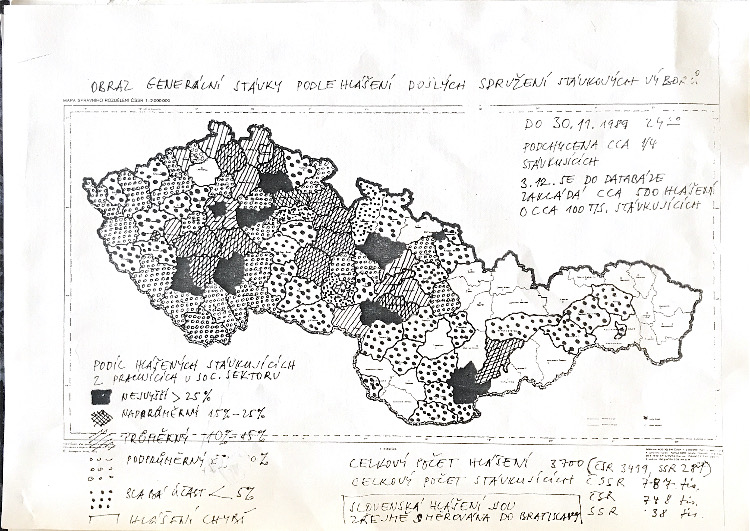 OBRAZ GENERÁLNÍ STÁVKY PODLE HLÁŠENÍ DOŠLÝCH SDRUŽENÍ STÁVKOVÝCH VÝBORŮ
MAPA SPRÁVNÍHO ROZDĚLENÍ ČSSR 1:2 000 000
DO 30.11.1989 24⁰⁰
PODCHYCENA CCA 1/4
STÁVKUJÍCÍCH
3.12. SE DO DATABÁZE
ZAKLÁDÁ CCA 500 HLÁŠENÍ
O CCA 100 TIS. STÁVKUJÍCÍCH
PODÍL HLÁŠENÝCH STÁVKUJÍCÍCH
Z PRACUJÍCÍCH V SOC. SEKTORU
NEJVYŠŠÍ > 25%
NADPRŮMĚRNÝ 15%-25%
PRŮMĚRNÝ 10%-15%
PODPRŮMĚRNÝ
SLABÁ ÚČAST < 5%
HLÁŠENÍ CHYBÍ
CELKOVÝ POČET HLÁŠENÍ 3700 (ČSR
CELKOVÝ POČET STÁVKUJÍCÍCH ČSSR 787 tis.
ČSR 748 tis.
SSR 38 tis.
SLOVENSKÁ HLÁŠENÍ JSOU
ZŘEJMĚ SMĚROVÁNA DO BRATISLAVY